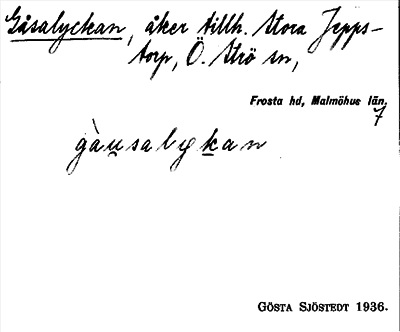 Gåsalyckan, åker tillh. Stora Jepps-
torp, Ö. Strö sn,
Frosta hd, Malmöhus län.
7
gàu̲salyk̲an
GÖSTA SJÖSTEDT 1936.